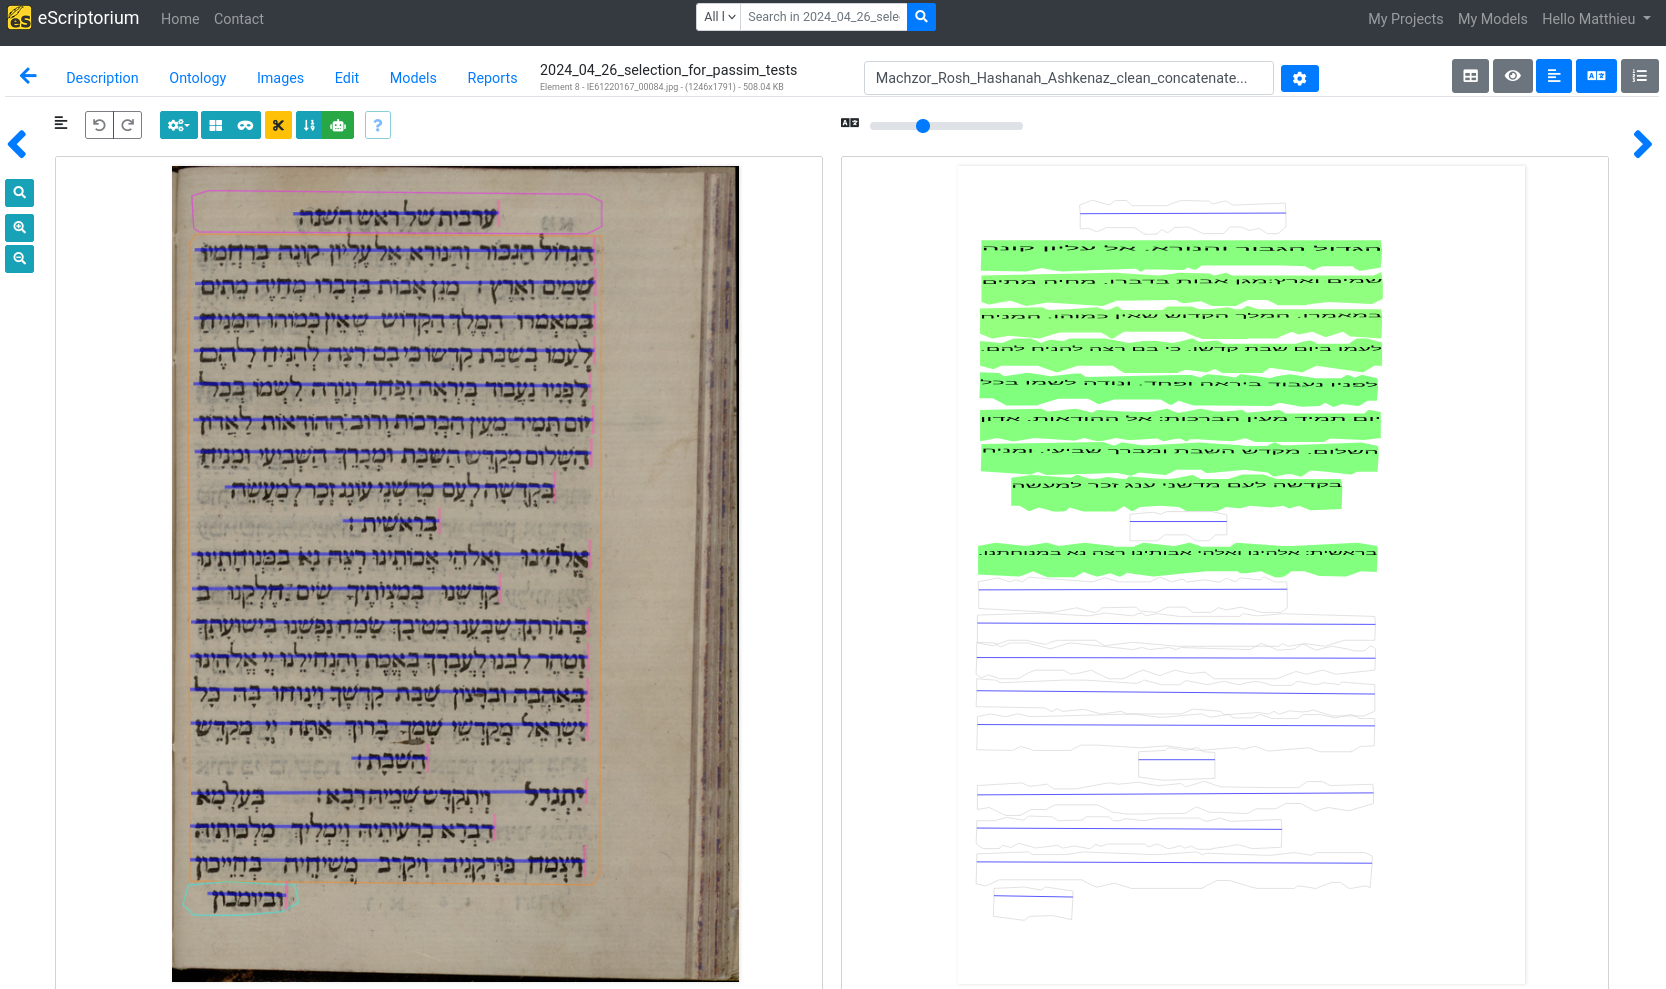 eScriptorium Home Contact All l Search in 2024_04_26_sele My Projects My Models Hello Matthieu
Description Ontology Images Edit Models Reports 2024_04_26_selection_for_passim_tests Machzor_Rosh_Hashanah_Ashkenaz_clean_concatenate...
Element 8 - IE61220167_00084.jpg - (1246x1791) - 508.04 KB
ערבית של ראש השנה
הגדול הגבור והנורא אל עליון קונה ברחמיו
שמים וארץ: מגן אבות בדברו מחיה מתים
במאמרו המלך הקדוש שאין כמוהו המניח
לעמו בשבת קדשו כי בם רצה להניח להם
לפניו נעבוד ביראה ופחד ונודה לשמו בכל
יום תמיד מעין הברכות ורוב ההודאות לאדון
השלום מקדש השבת ומברך השביעי ומניח
בקדשה לעם מדשני עונג זכר למעשה
בראשית:
אלהינו ואלהי אבותינו רצה נא במנוחתינו
קדשנו במצותיך שים חלקנו ב
בתורתך שבענו מטובך שמח נפשנו בישועתך
וטהר לבנו לעבדך באמת והנחילנו יי אלהינו
באהבה וברצון שבת קדשך וינוחו בה כל
ישראל מקדשי שמך ברוך אתה יי מקדש
השבת:
יתגדל ויתקדש שמיה רבא: בעלמא
דברא כרעותיה וימליך מלכותיה
ויצמח פורקניה ויקרב משיחיה בחייכון
וביומכון
הגדול הגבור והנורא. אל עליון קונה
שמים וארץ:מגן אבות בדברו. מחיה מתים
במאמרו. המלך הקדוש שאין כמוהו. המניח
לעמו ביום שבת קדשו. כי בם רצה להניח להם.
לפניו נעבוד ביראה ופחד. ונודה לשמו בכל
יום תמיד מעין הברכות: אל ההודאות. אדון
השלום. מקדש השבת ומברך שביעי. ומניח
בקדשה לעם מדשני ענג זכר למעשה
בראשית: אלהינו ואלהי אבותינו רצה נא במנוחתנו.